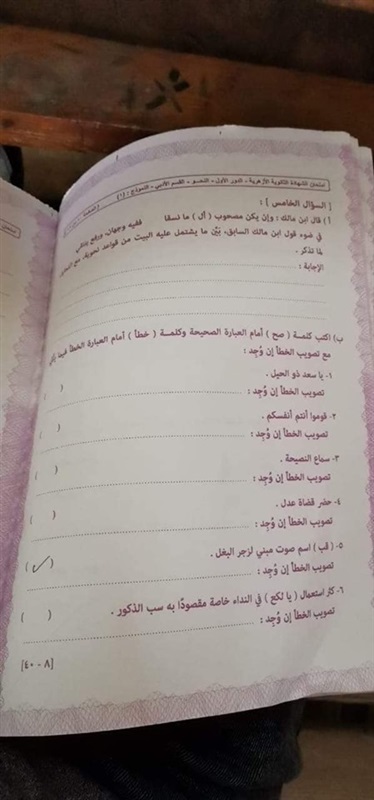 امتحان الشهادة الثانوية الأزهرية - الدور الأول - النحو - القسم الأدبي - النموذج : (١)
[ السؤال الخامس ] :
أ) قال ابن مالك : وإن يكن مصحوب ( أل ) ما نسقا ففيه وجهان، ورفع ينتقى
في ضوء قول ابن مالك السابق، بَيِّن ما يشتمل عليه البيت من قواعد نحوية، مع
لما تذكر .
الإجابة :
ب) اكتب كلمة ( صح ) أمام العبارة الصحيحة وكلمة ( خطأ ) أمام العبارة الخطأ فيما يأتي
مع تصويب الخطأ إن وُجِد :
١- يا سعد ذو الحيل . ( )
تصويب الخطأ إن وُجِد :
٢- قوموا أنتم أنفسكم . ( )
تصويب الخطأ إن وُجِد :
٣- سماع النصيحة . ( )
تصويب الخطأ إن وُجِد :
٤- حضر قضاة عدل . ( )
تصويب الخطأ إن وُجِد :
٥- ( قب ) اسم صوت مبني لزجر البغل . ( ✓ )
تصويب الخطأ إن وُجِد :
٦- كثر استعمال ( يا لكع ) في النداء خاصة مقصودًا به سب الذكور . ( )
تصويب الخطأ إن وُجِد :
[٨ - ٤٠]